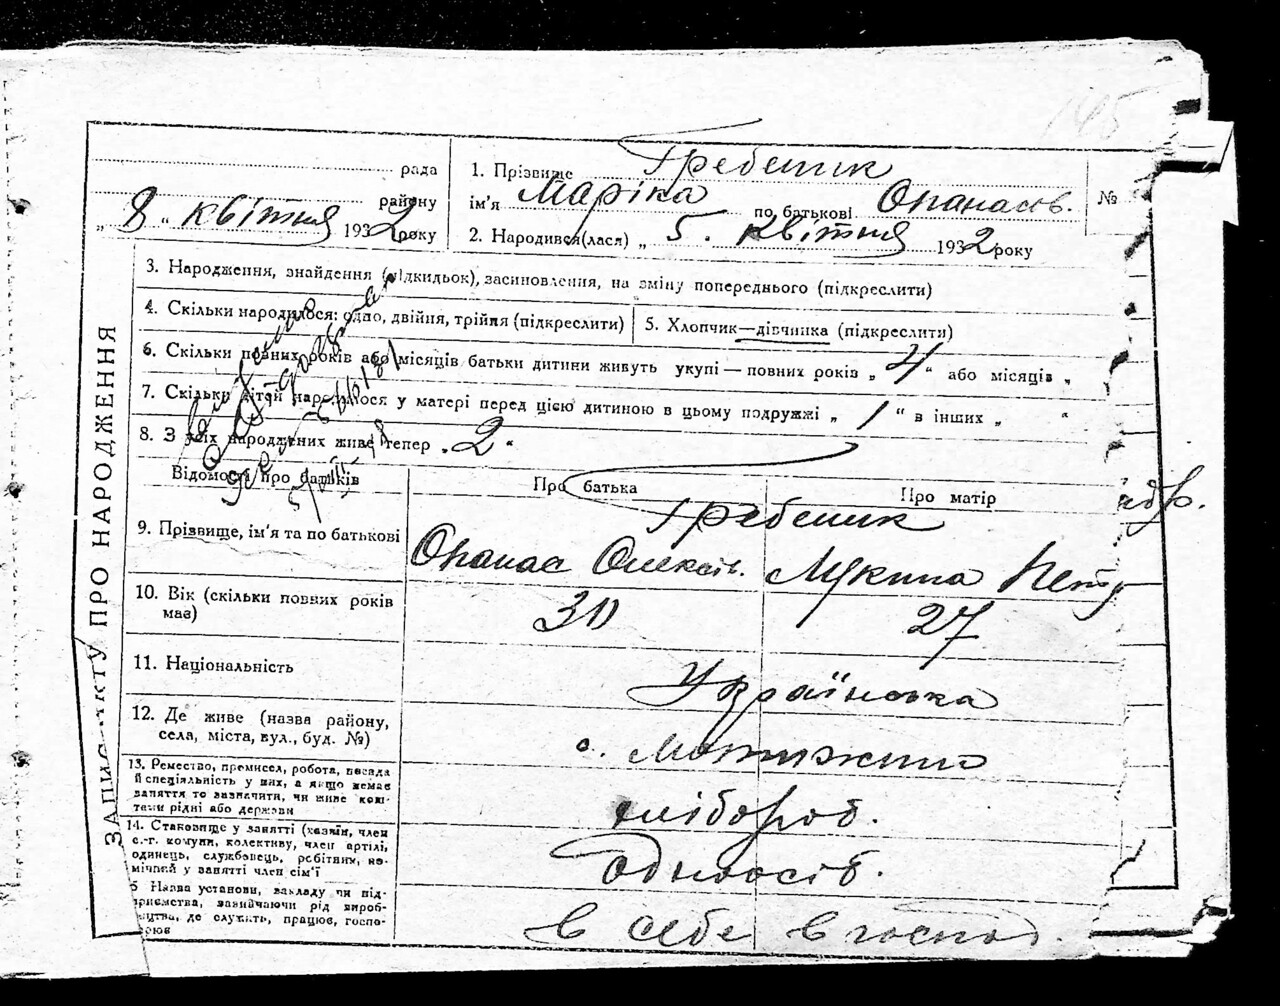 145
рада
району
„ 8 „ квітня 1932 року
1. Прізвище Гребеник
ім'я Маріка по батькові Опанасів.
№
2. Народився(лася) „ 5. квітня 1932 року
ЗАПИС АКТУ ПРО НАРОДЖЕННЯ
3. Народження, знайдення (підкидьок), засиновлення, на зміну попереднього (підкреслити)
4. Скільки народилося: одно, двійня, трійня (підкреслити)
5. Хлопчик—дівчинка (підкреслити)
6. Скільки повних років або місяців батьки дитини живуть укупі — повних років „ 4 “ або місяців „
7. Скільки дітей народилося у матері перед цією дитиною в цьому подружжі „ 1 “ в інших „ “
8. З усіх народжених живе тепер „ 2 “
Відомості про батьків
Про батька
Про матір
9. Прізвище, ім'я та по батькові
Гребеник
Опанас Олексів.
Мукина Петр
10. Вік (скільки повних років має)
30
27
11. Національність
Українська
12. Де живе (назва району,
села, міста, вул., буд. №)
с. Мотижино
13. Ремество, промисел, робота, посада
й спеціяльність у них, а якщо немає
заняття то зазначити, чи живе кош-
тами рідні або держави
хлібороб.
14. Становище у занятті (хазяїн, член
с.-г. комуни, колективу, член артілі,
одинець, службовець, робітник, по-
мічний у занятті член сім'ї
одноосіб.
5 Назва установи, закладу чи під-
приємства, зазначаючи рід вироб-
ництва, де служить, працює, госпо-
дарює
в себе в господ.